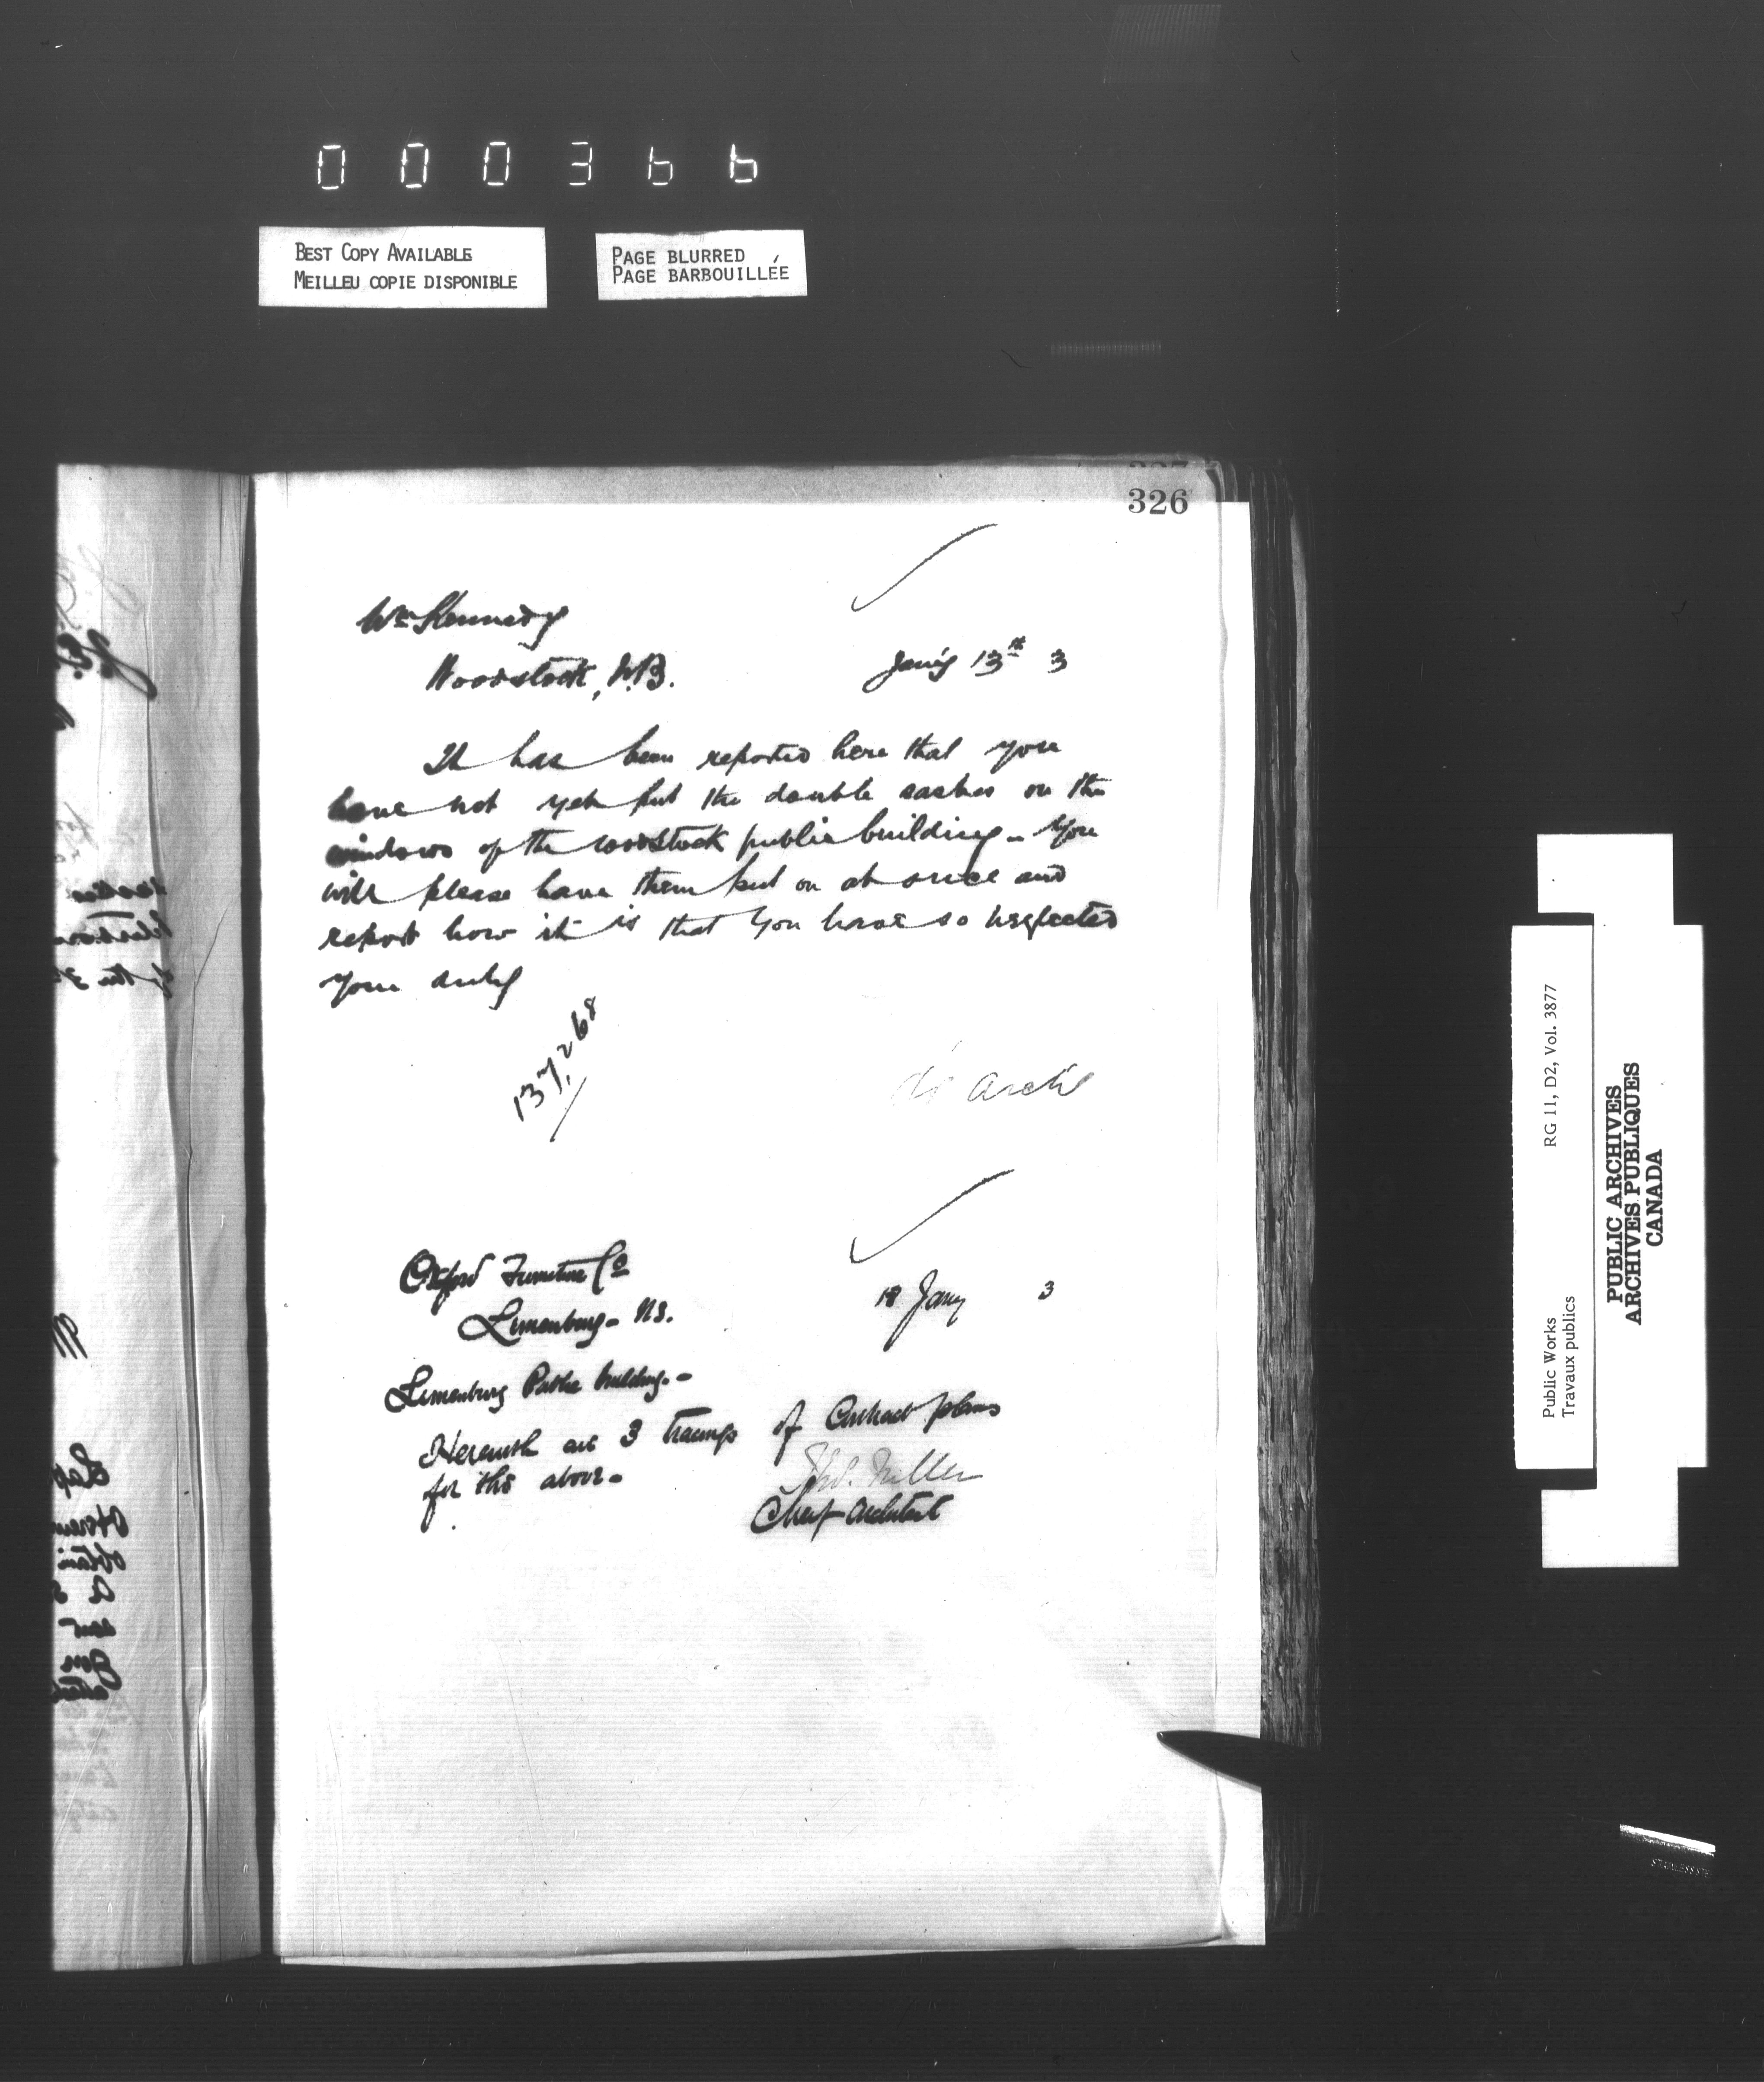 000366
BEST COPY AVAILABLE
MEILLEU COPIE DISPONIBLE
PAGE BLURRED
PAGE BARBOUILLÉE
326
Wm Kennedy
Woodstock, N.B.
Jan'y 13th 3
It has been reported here that you
have not yet put the double sashes on the
windows of the woodstock public building - You
will please have them put on at once and
report how it is that you have so neglected
your duty
137,268
Oxford Furniture Co
Lunenburg - N.S.
18 Jany 3
Lunenburg Public building -
Herewith are 3 tracings of Contract plans
for the above -
Chief Architect
Public Works
Travaux publics
RG 11, D2, Vol. 3877
PUBLIC ARCHIVES
ARCHIVES PUBLIQUES
CANADA